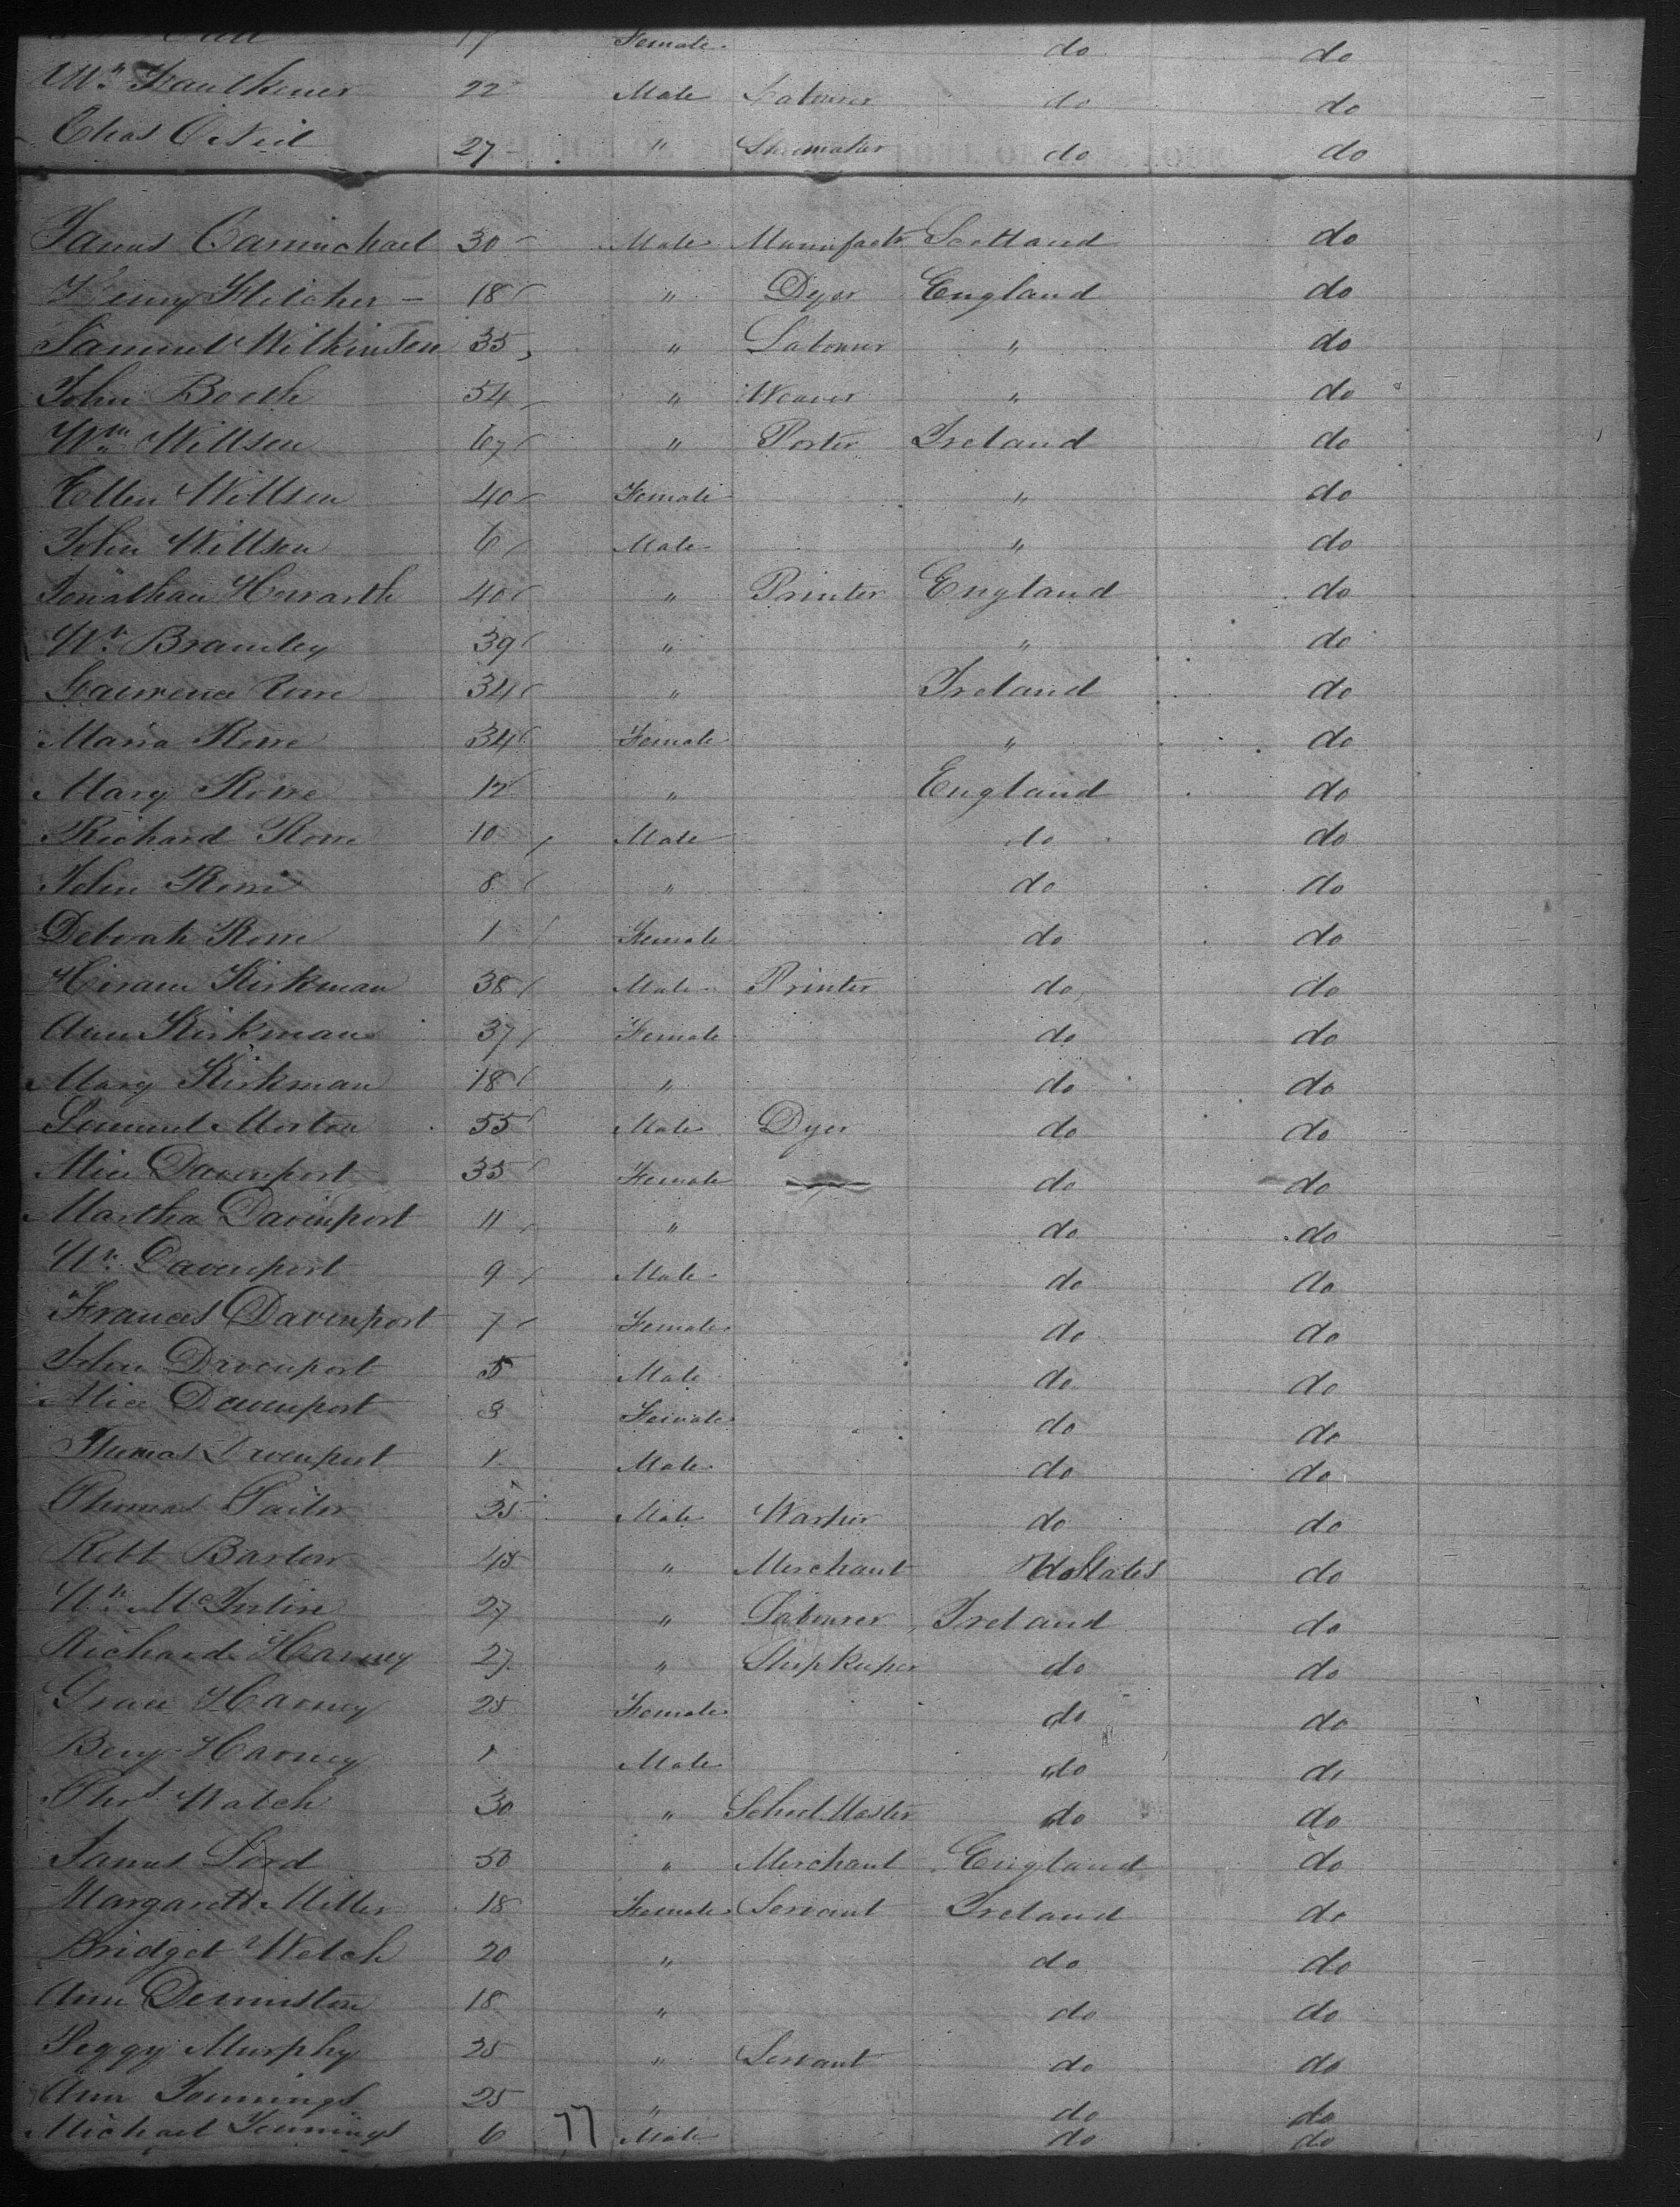 17 Female do do
Wm Faulkener 22 Male Labourer do do
Chas O Neil 27 " Shoemaker do do
James Carmichael 30 Male Manufactr Scotland do
Henry Fletcher 18 " Dyer England do
Samuel Wilkinson 35 " Labourer " do
John Booth 54 " Weaver " do
Wm Willson 67 " Porter Ireland do
Ellen Willson 40 Female " do
John Willson 6 Male " do
Jonathan Howarth 40 " Printer England do
Wm Bramley 39 " " do
Lawrence 34 " Ireland do
Maria Rowe 34 Female " do
Mary Rowe 12 " England do
Richard Rowe 10 Male do do
John Rowe 8 " do do
Deborah Rowe 1 Female do do
Hiram Kirkman 38 Male Printer do do
Ann Kirkman 37 Female do do
Mary Kirkman 18 " do do
Samuel Morton 55 Male Dyer do do
Alice Davenport 35 Female do do
Martha Davenport 11 " do do
Wm Davenport 9 Male do do
Frances Davenport 7 Female do do
John Davenport 5 Male do do
Alice Davenport 3 Female do do
Thomas Davenport 1 Male do do
Thomas Tailor 25 Male Warper do do
Robt Barlow 45 " Merchant States do
Wm 27 " Labourer Ireland do
Richard Harney 27 " Shopkeeper do do
Grace Harney 25 Female do do
Benj Harney 1 Male do do
Thos Walch 30 " School Master do do
James Lord 50 " Merchant England do
Margarett Miller 18 Female Servant Ireland do
Bridget Welch 20 " do do
Ann Denniston 18 " do do
Peggy Murphy 25 " Servant do do
Ann Jennings 25 " do do
Michael Jennings 6 77 Male do do